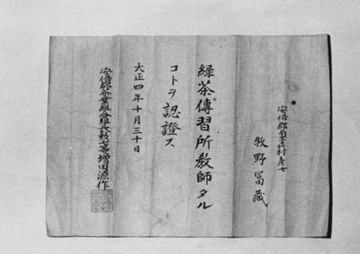 安倍郡 村産女
牧野富藏
緑茶傳習所教師タル
コトヲ認證ス
大正四年十月三十日
安倍郡茶業組合組長勲七等増田源作